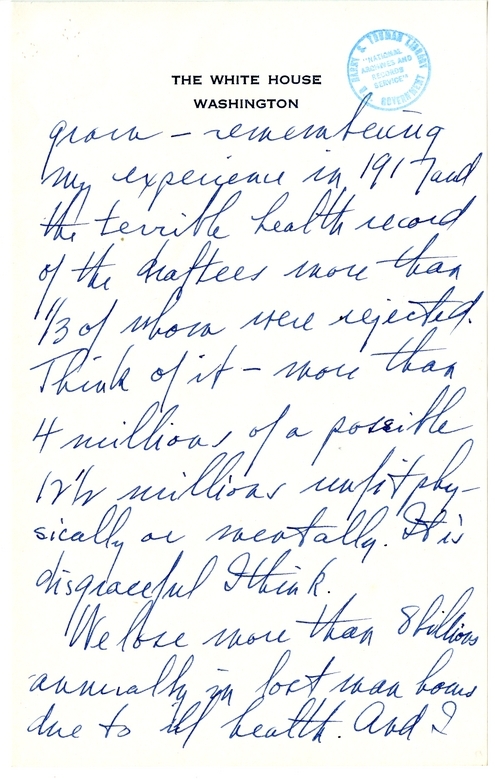 THE WHITE HOUSE
WASHINGTON
HARRY S. TRUMAN LIBRARY
"NATIONAL
ARCHIVES AND
RECORDS
SERVICE"
GOVERNMENT
gram – remembering
my experience in 1917 and
the terrible health record
of the draftees more than
1/3 of whom were rejected.
Think of it – more than
4 millions of a possible
12 1/2 millions unfit phy-
sically or mentally. It is
disgraceful I think.
We lose more than 8 billions
annually in lost man hours
due to ill health. And I